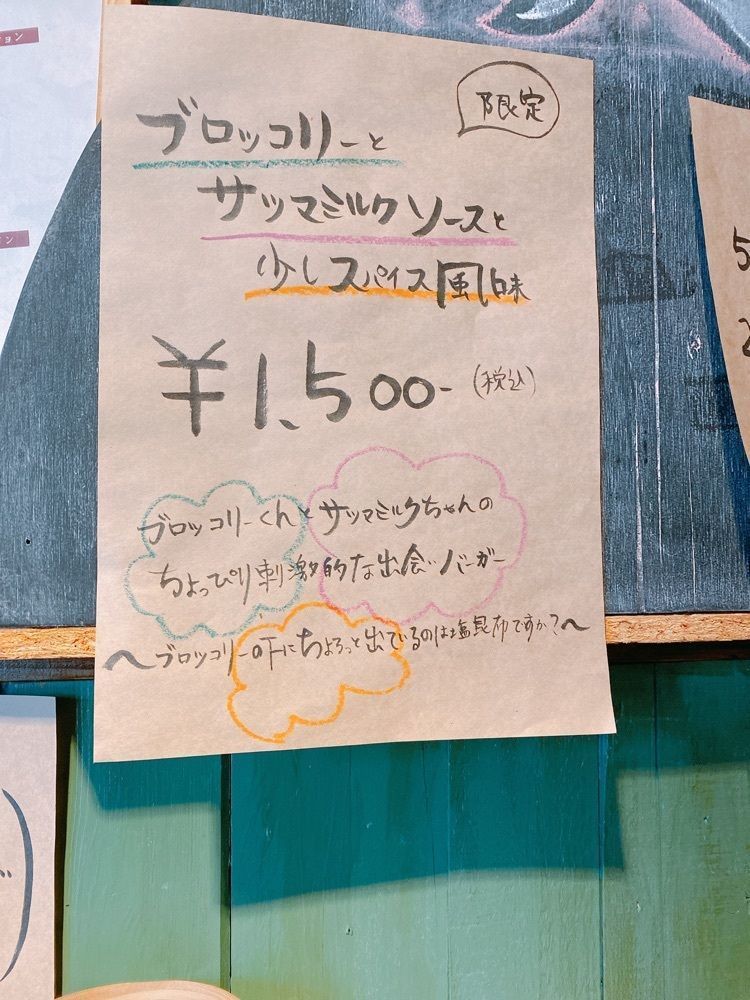 限定
ブロッコリーと
サツマミルクソースと
少しスパイス風味
¥1,500-(税込)
ブロッコリーくんとサツマミルクちゃんの
ちょっぴり刺激的な出会いバーガー
〜ブロッコリーの下にちょろっと出ているのは塩昆布ですか?〜
ョン
ョン
5
2